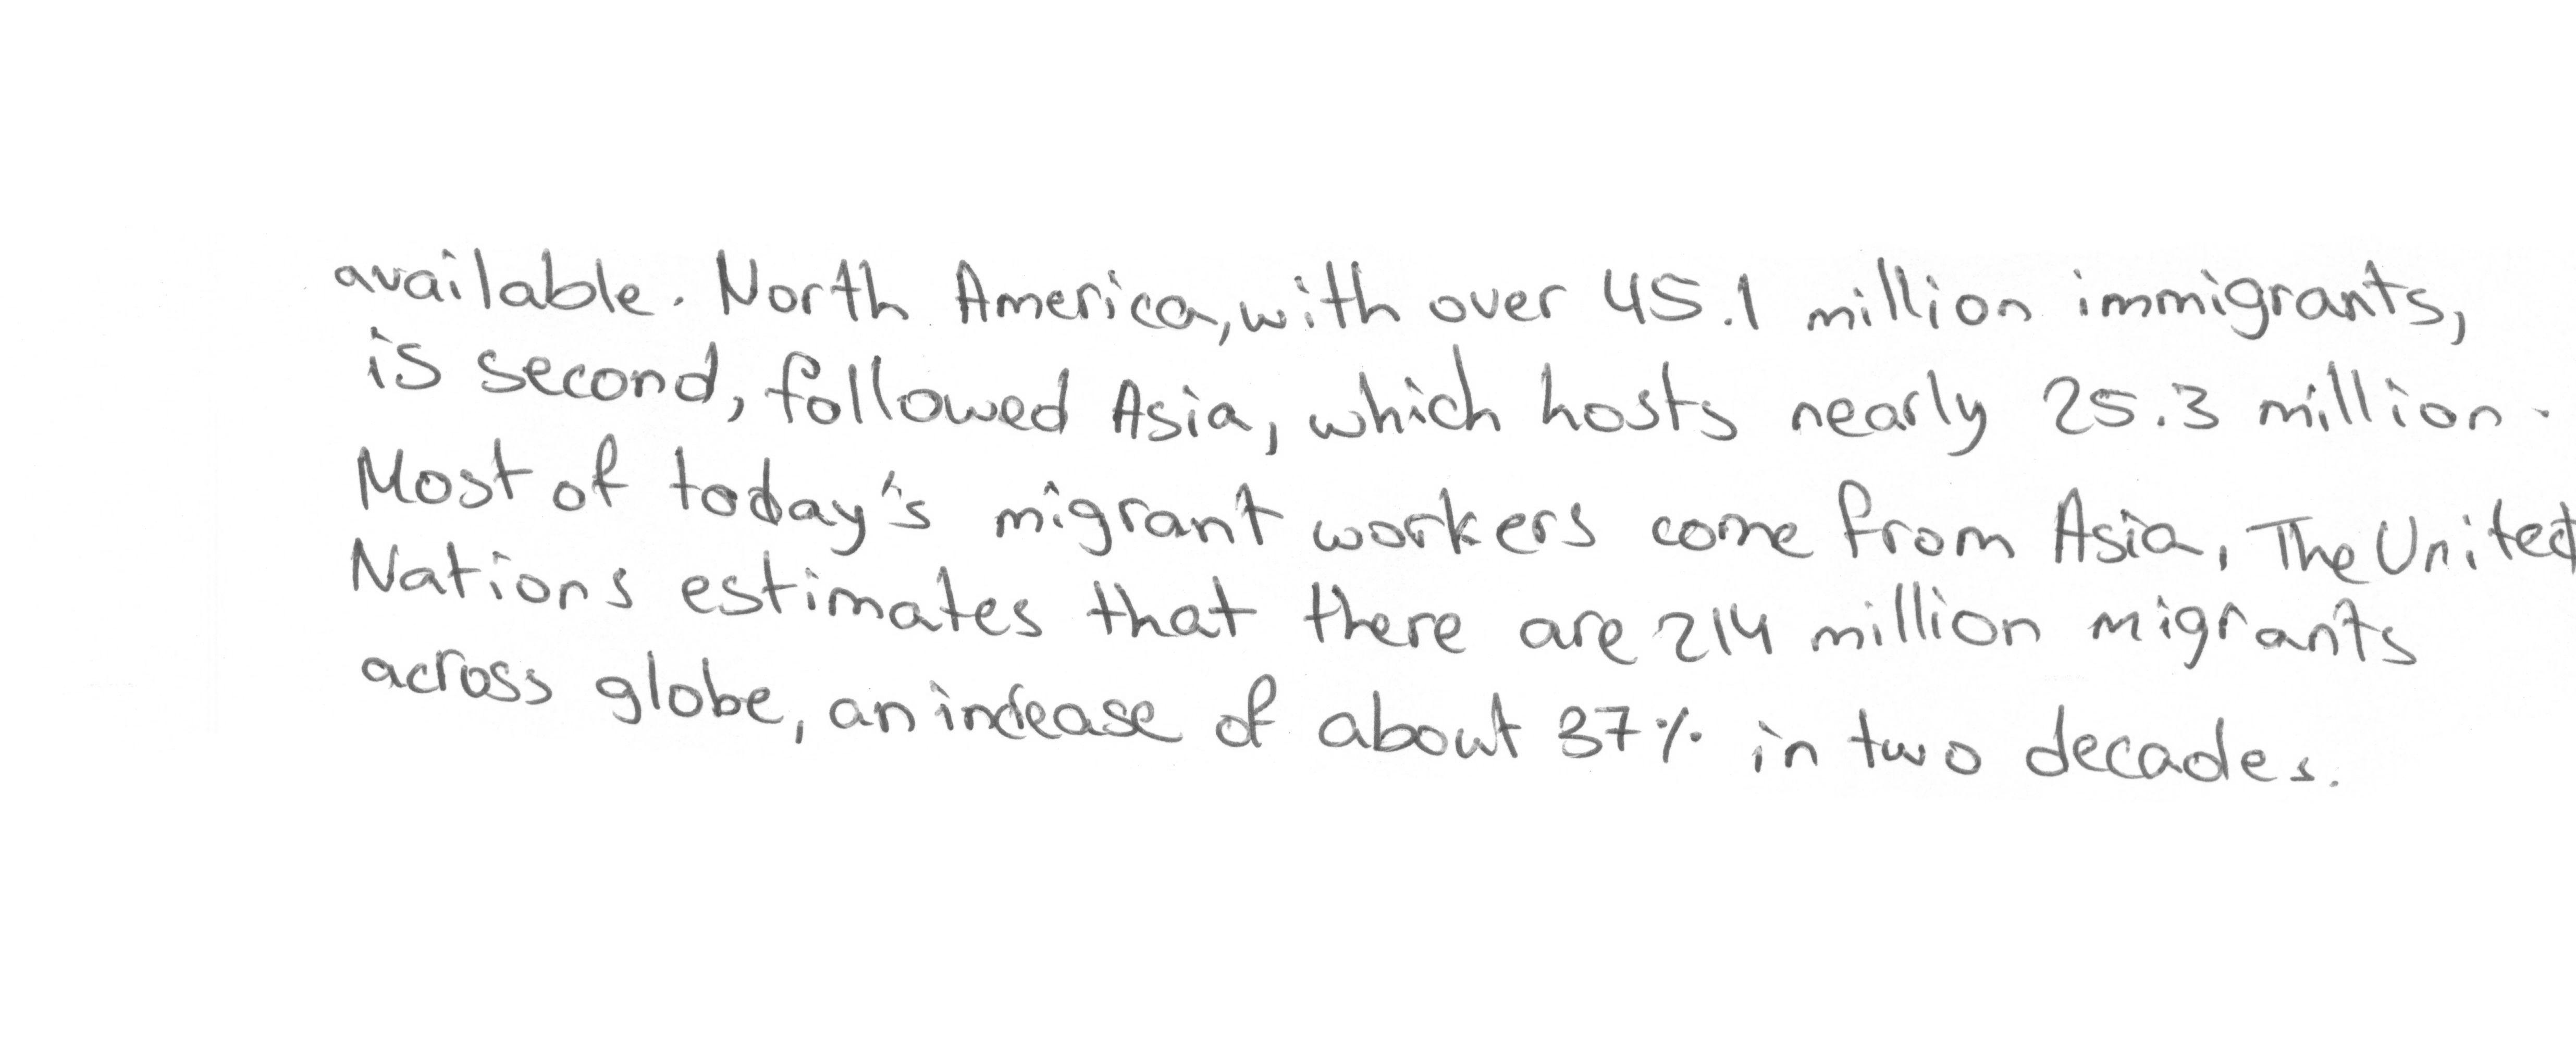 available. North America, with over 45.1 million immigrants,
is second, followed Asia, which hosts nearly 25.3 million.
Most of today's migrant workers come from Asia, The United
Nations estimates that there are 214 million migrants
across globe, an increase of about 37% in two decades.